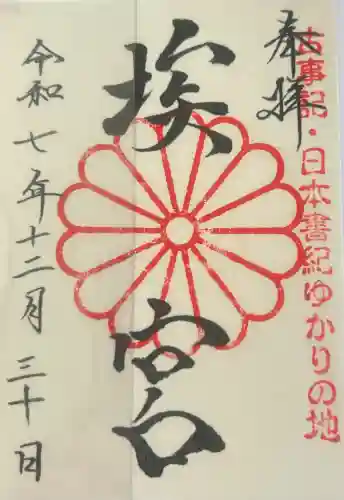 奉拝
古事記・日本書紀ゆかりの地
埃宮
令和七年十二月三十日